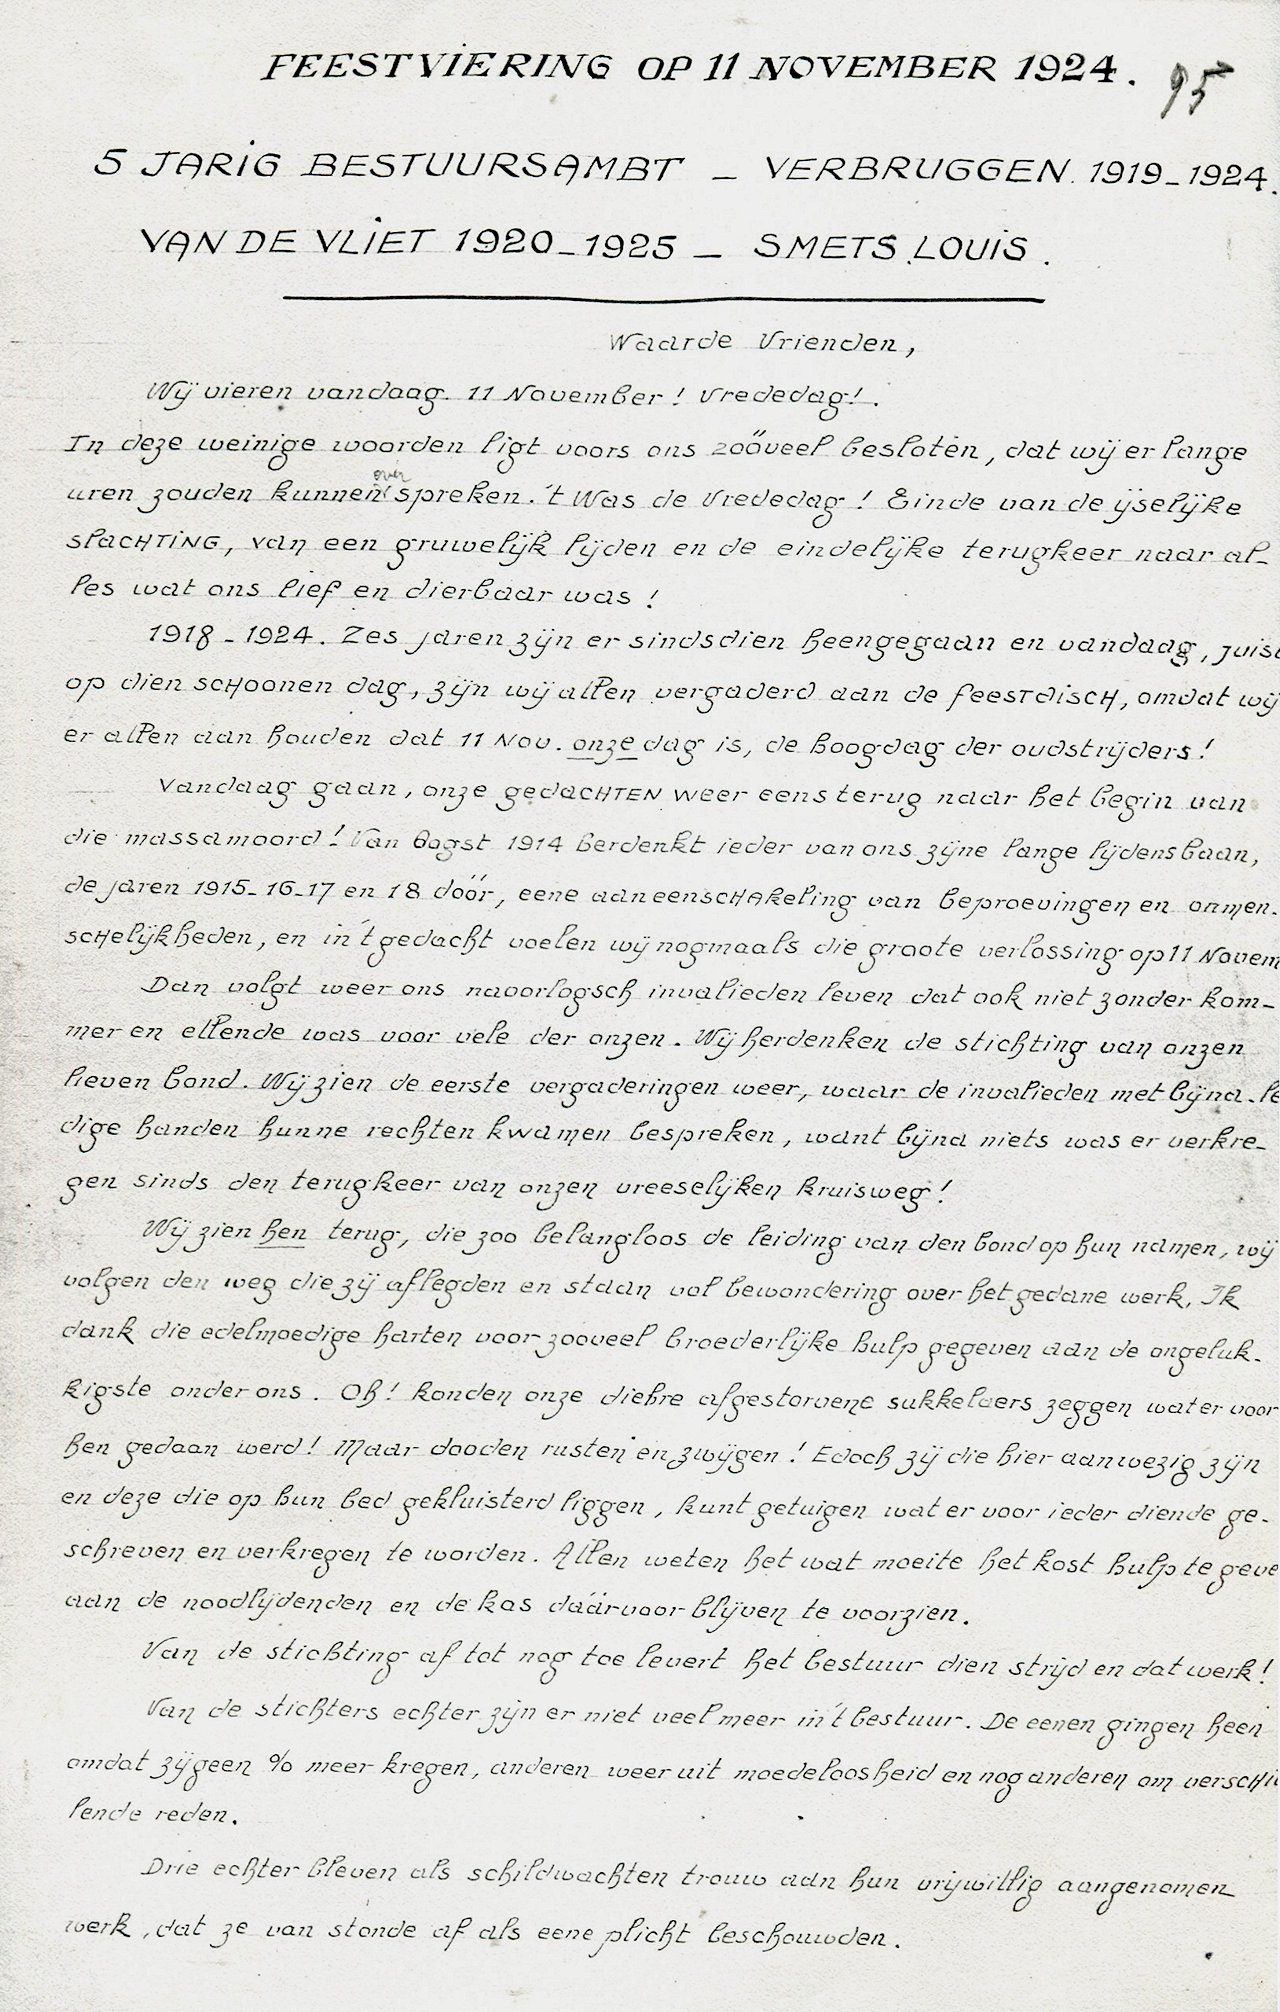 FEESTVIERING OP 11 NOVEMBER 1924.
95
5 JARIG BESTUURSAMBT _ VERBRUGGEN. 1919_1924.
VAN DE VLIET 1920_1925 _ SMETS LOUIS.
Waarde Vrienden,
Wij vieren vandaag. 11 November! Vrededag!.
In deze weinige woorden ligt voors ons zoöveel besloten, dat wij er lange
uren zouden kunnen over spreken. 't Was de Vrededag! Einde van de ijselijke
slachting, van een gruwelijk lijden en de eindelijke terugkeer naar al_
les wat ons lief en dierbaar was!
1918_1924. Zes jaren zijn er sindsdien heengegaan en vandaag, juist
op dien schoonen dag, zijn wij allen vergaderd aan de feestdisch, omdat wij
er allen aan houden dat 11 Nov. onze dag is, de hoogdag der oudstrijders!
Vandaag gaan, onze gedachten weer eens terug naar het begin van
die massamoord! Van Oogst 1914 herdenkt ieder van ons zijne lange lijdensbaan,
de jaren 1915_16_17 en 18 dóór, eene aaneenschakeling van beproevingen en onmen_
schelijkheden, en in 't gedacht voelen wij nogmaals die groote verlossing op 11 Novem
Dan volgt weer ons naoorlogsch invalieden leven dat ook niet zonder kom_
mer en ellende was voor vele der onzen. Wij herdenken de stichting van onzen
lieven bond. Wij zien de eerste vergaderingen weer, waar de invalieden met bijna le
dige handen hunne rechten kwamen bespreken, want bijna niets was er verkre_
gen sinds den terugkeer van onzen vreeselijken kruisweg!
Wij zien hen terug, die zoo belangloos de leiding van den bond op hun namen, wij
volgen den weg die zij aflegden en staan vol bewondering over het gedane werk. Ik
dank die edelmoedige harten voor zooveel broederlijke hulp gegeven aan de ongeluk_
kigste onder ons. Oh! konden onze diebre afgestorvene sukkelaers zeggen wat er voor
hen gedaan werd! Maar dooden rusten en zwijgen! Edoch zij die hier aanwezig zijn
en deze die op hun bed gekluisterd liggen, kunt getuigen wat er voor ieder diende ge_
schreven en verkregen te worden. Allen weten het wat moeite het kost hulp te geve
aan de noodlijdenden en de kas dáárvoor blijven te voorzien.
Van de stichting af tot nog toe levert het bestuur dien strijd en dat werk!
Van de stichters echter zijn er niet veel meer in 't bestuur. De eenen gingen heen
omdat zij geen % meer kregen, anderen weer uit moedeloosheid en nog anderen om verschil
lende reden.
Drie echter bleven als schildwachten trouw aan hun vrijwillig aangenomen
werk, dat ze van stonde af als eene plicht beschouwden.